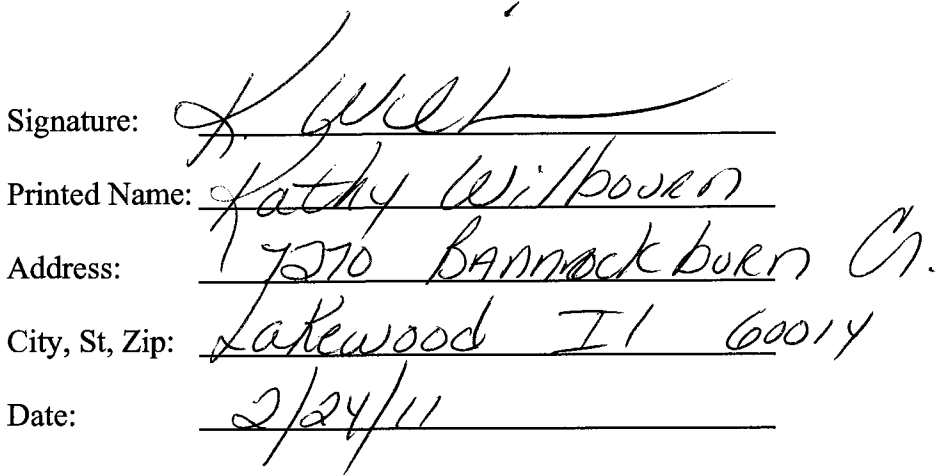 Signature: K. Wil
Printed Name: Kathy Wilbourn
Address: 7270 Bannockburn Cr.
City, St, Zip: Lakewood Il 60014
Date: 2/24/11